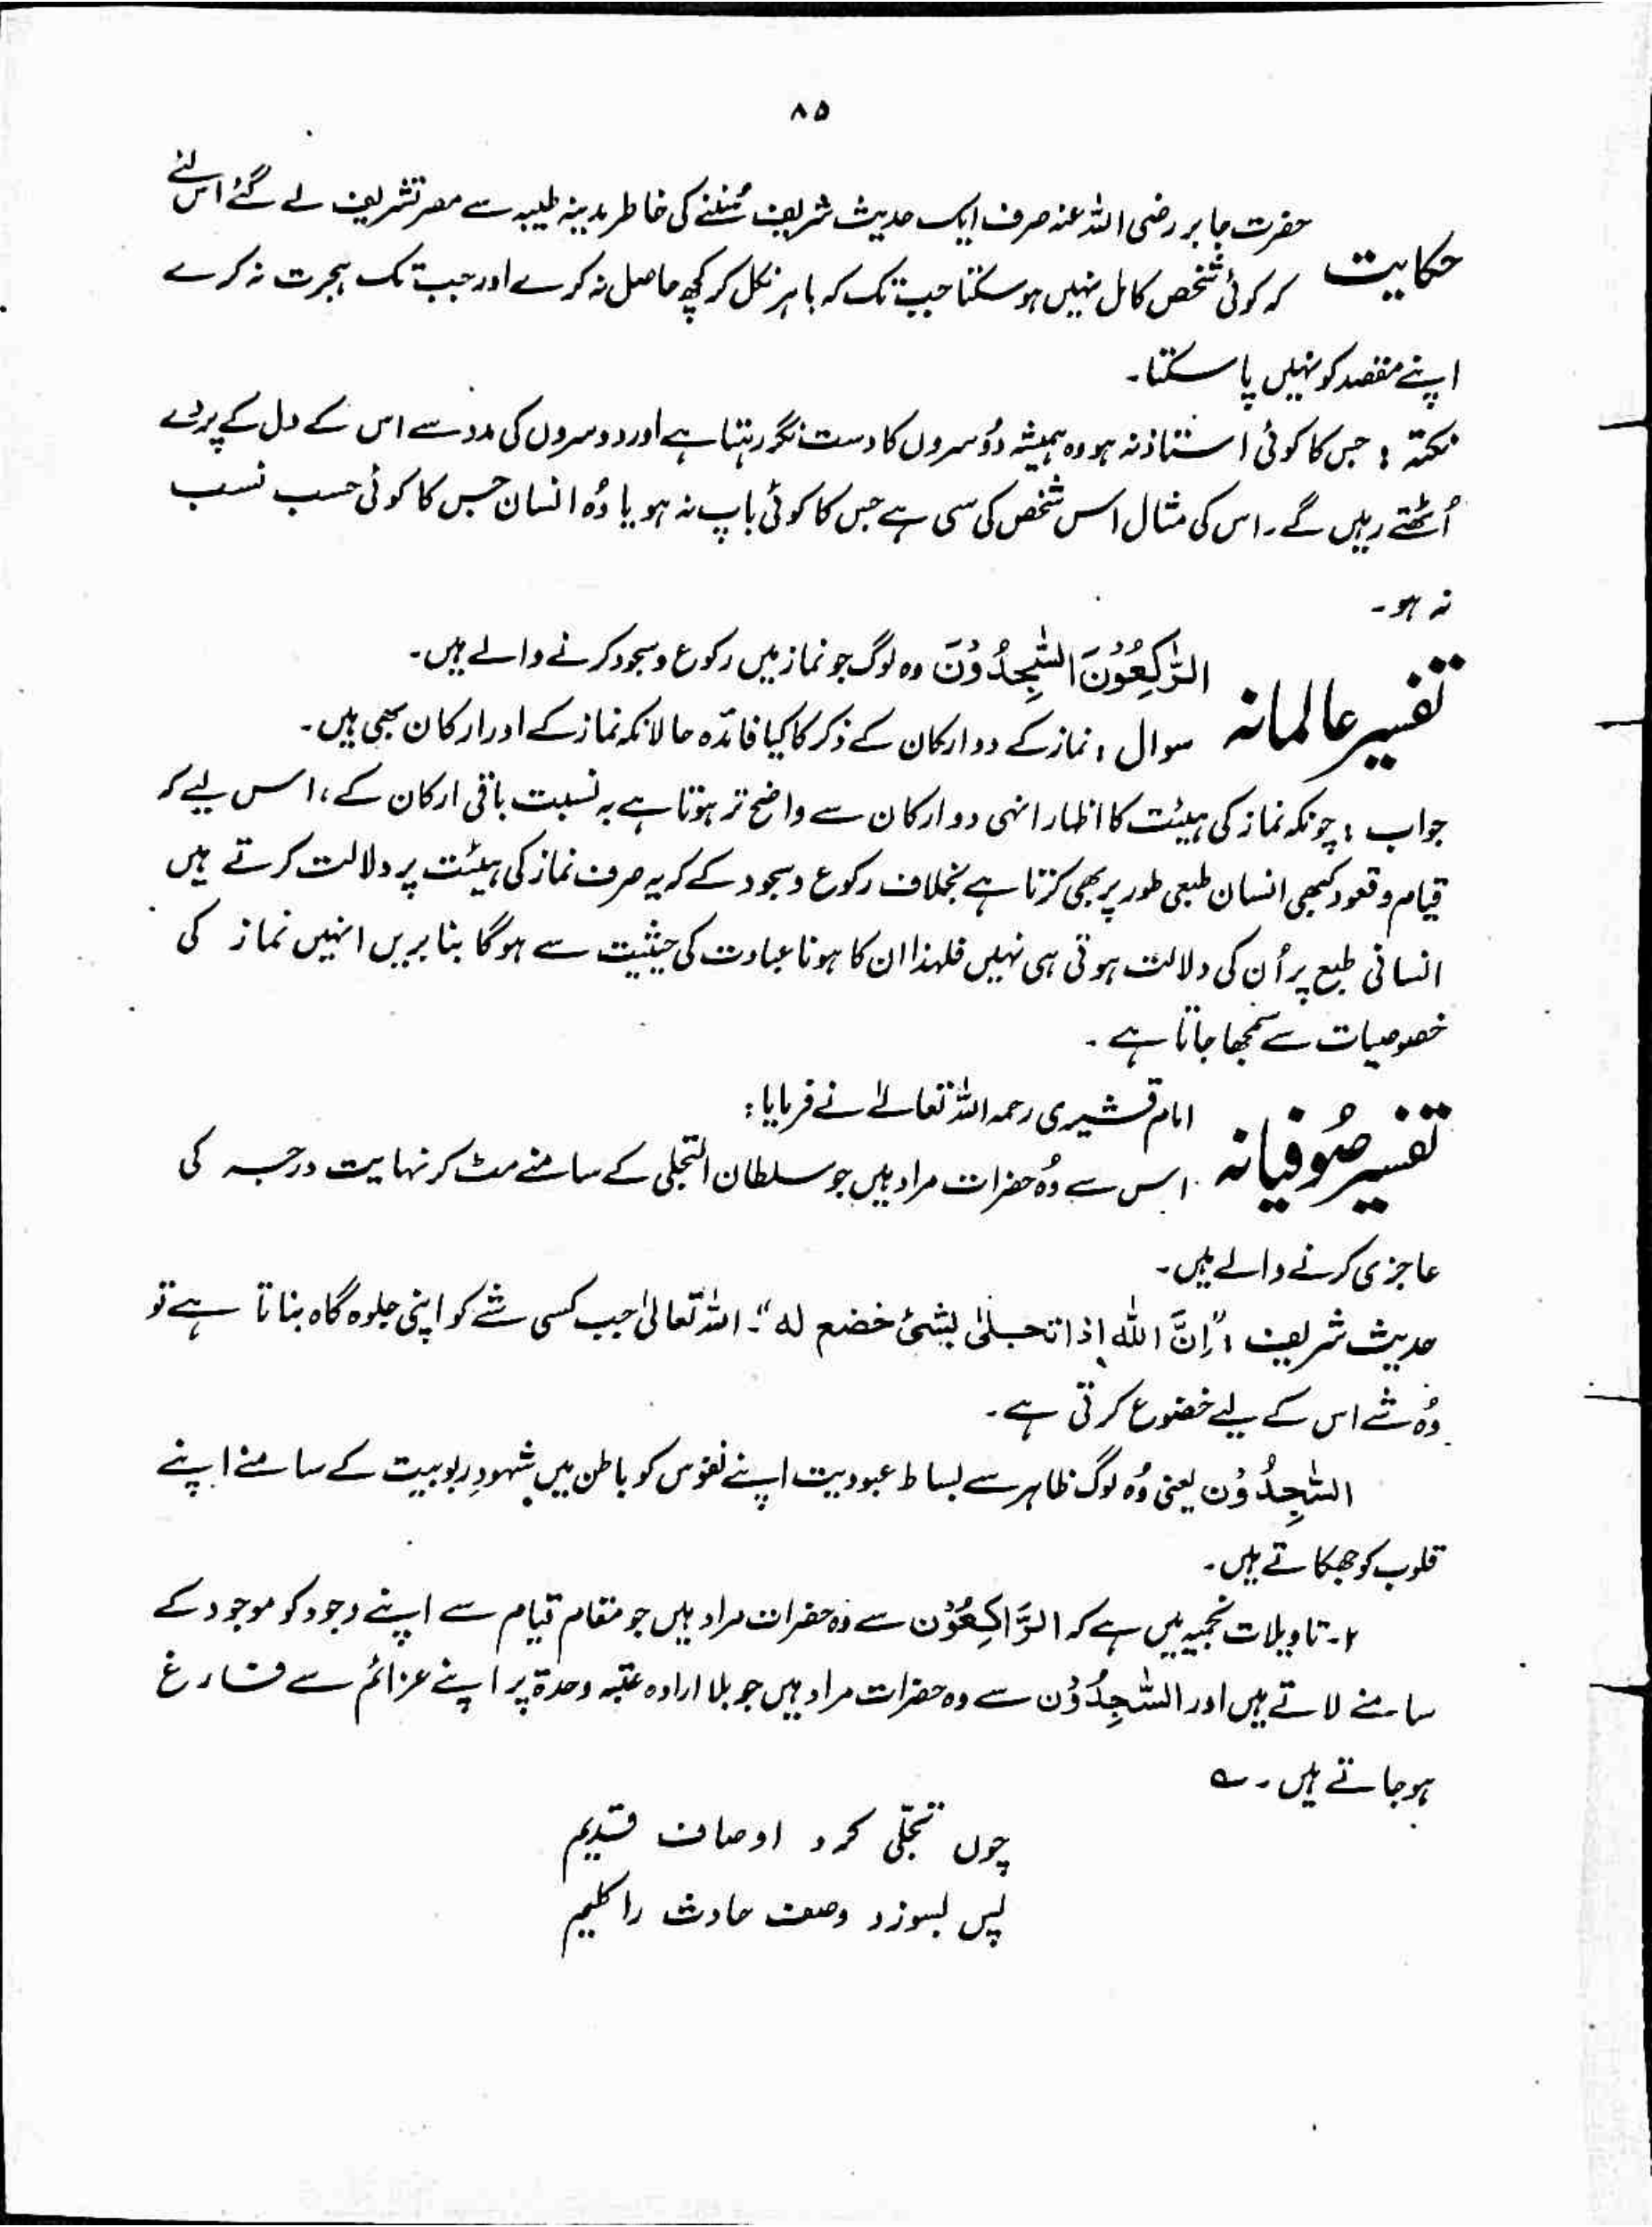 ۸۵
حکایت حضرت جابر رضی اللہ عنہ صرف ایک حدیث شریف سُننے کی خاطر مدینہ طیبہ سے مصر تشریف لے گئے اس لئے
کہ کوئی شخص کامل نہیں ہو سکتا جب تک کہ باہر نکل کر کچھ حاصل نہ کرے اور جب تک ہجرت نہ کرے
اپنے مقصد کو نہیں پا سکتا۔
نکتہ : جس کا کوئی استاذ نہ ہو وہ ہمیشہ دُوسروں کا دست نگر رہتا ہے اور دوسروں کی مدد سے اس کے دل کے پردے
اُٹھتے رہیں گے۔ اس کی مثال اس شخص کی سی ہے جس کا کوئی باپ نہ ہو یا وُہ انسان جس کا کوئی حسب نسب
نہ ہو۔
تفسیر عالمانہ الرّٰکِعُوْنَ السّٰجِدُوْنَ وہ لوگ جو نماز میں رکوع و سجود کرنے والے ہیں۔
سوال : نماز کے دو ارکان کے ذکر کا کیا فائدہ حالانکہ نماز کے اور ارکان بھی ہیں۔
جواب : چونکہ نماز کی ہیئت کا اظہار انہی دو ارکان سے واضح تر ہوتا ہے بہ نسبت باقی ارکان کے، اس لیے کہ
قیام و قعود کبھی انسان طبعی طور پر بھی کرتا ہے بخلاف رکوع و سجود کے کہ یہ صرف نماز کی ہیئت پر دلالت کرتے ہیں
انسانی طبع پر اُن کی دلالت ہوتی ہی نہیں فلہٰذا ان کا ہونا عبادت کی حیثیت سے ہوگا بنا بریں انہیں نماز کی
خصوصیات سے سمجھا جاتا ہے ۔
تفسیر صُوفیانہ امام قشیری رحمہ اللہ تعالےٰ نے فرمایا :
اس سے وُہ حضرات مراد ہیں جو سلطان التجلی کے سامنے مٹ کر نہایت درجہ کی
عاجزی کرنے والے ہیں۔
حدیث شریف : "اِنَّ اللہ اذا تجلیٰ بشئ خضع لہ"۔ اللہ تعالیٰ جب کسی شے کو اپنی جلوہ گاہ بناتا ہے تو
وُہ شے اس کے لیے خضوع کرتی ہے۔
السّٰجِدُوْن یعنی وُہ لوگ ظاہر سے بساط عبودیت اپنے نفوس کو باطن میں شہودِ ربوبیت کے سامنے اپنے
قلوب کو جھکاتے ہیں۔
۲۔ تاویلات نجمیہ میں ہے کہ الرَّاکِعُوْن سے وہ حضرات مراد ہیں جو مقام قیام سے اپنے وجود کو موجود کے
سامنے لاتے ہیں اور السّٰجِدُوْن سے وہ حضرات مراد ہیں جو بلا ارادہ عتبہ وحدۃ پر اپنے عزائم سے فارغ
ہو جاتے ہیں۔ ؎
چوں تجلّی کرد اوصاف قدیم
پس بسوزد وصف حادث را کلیم